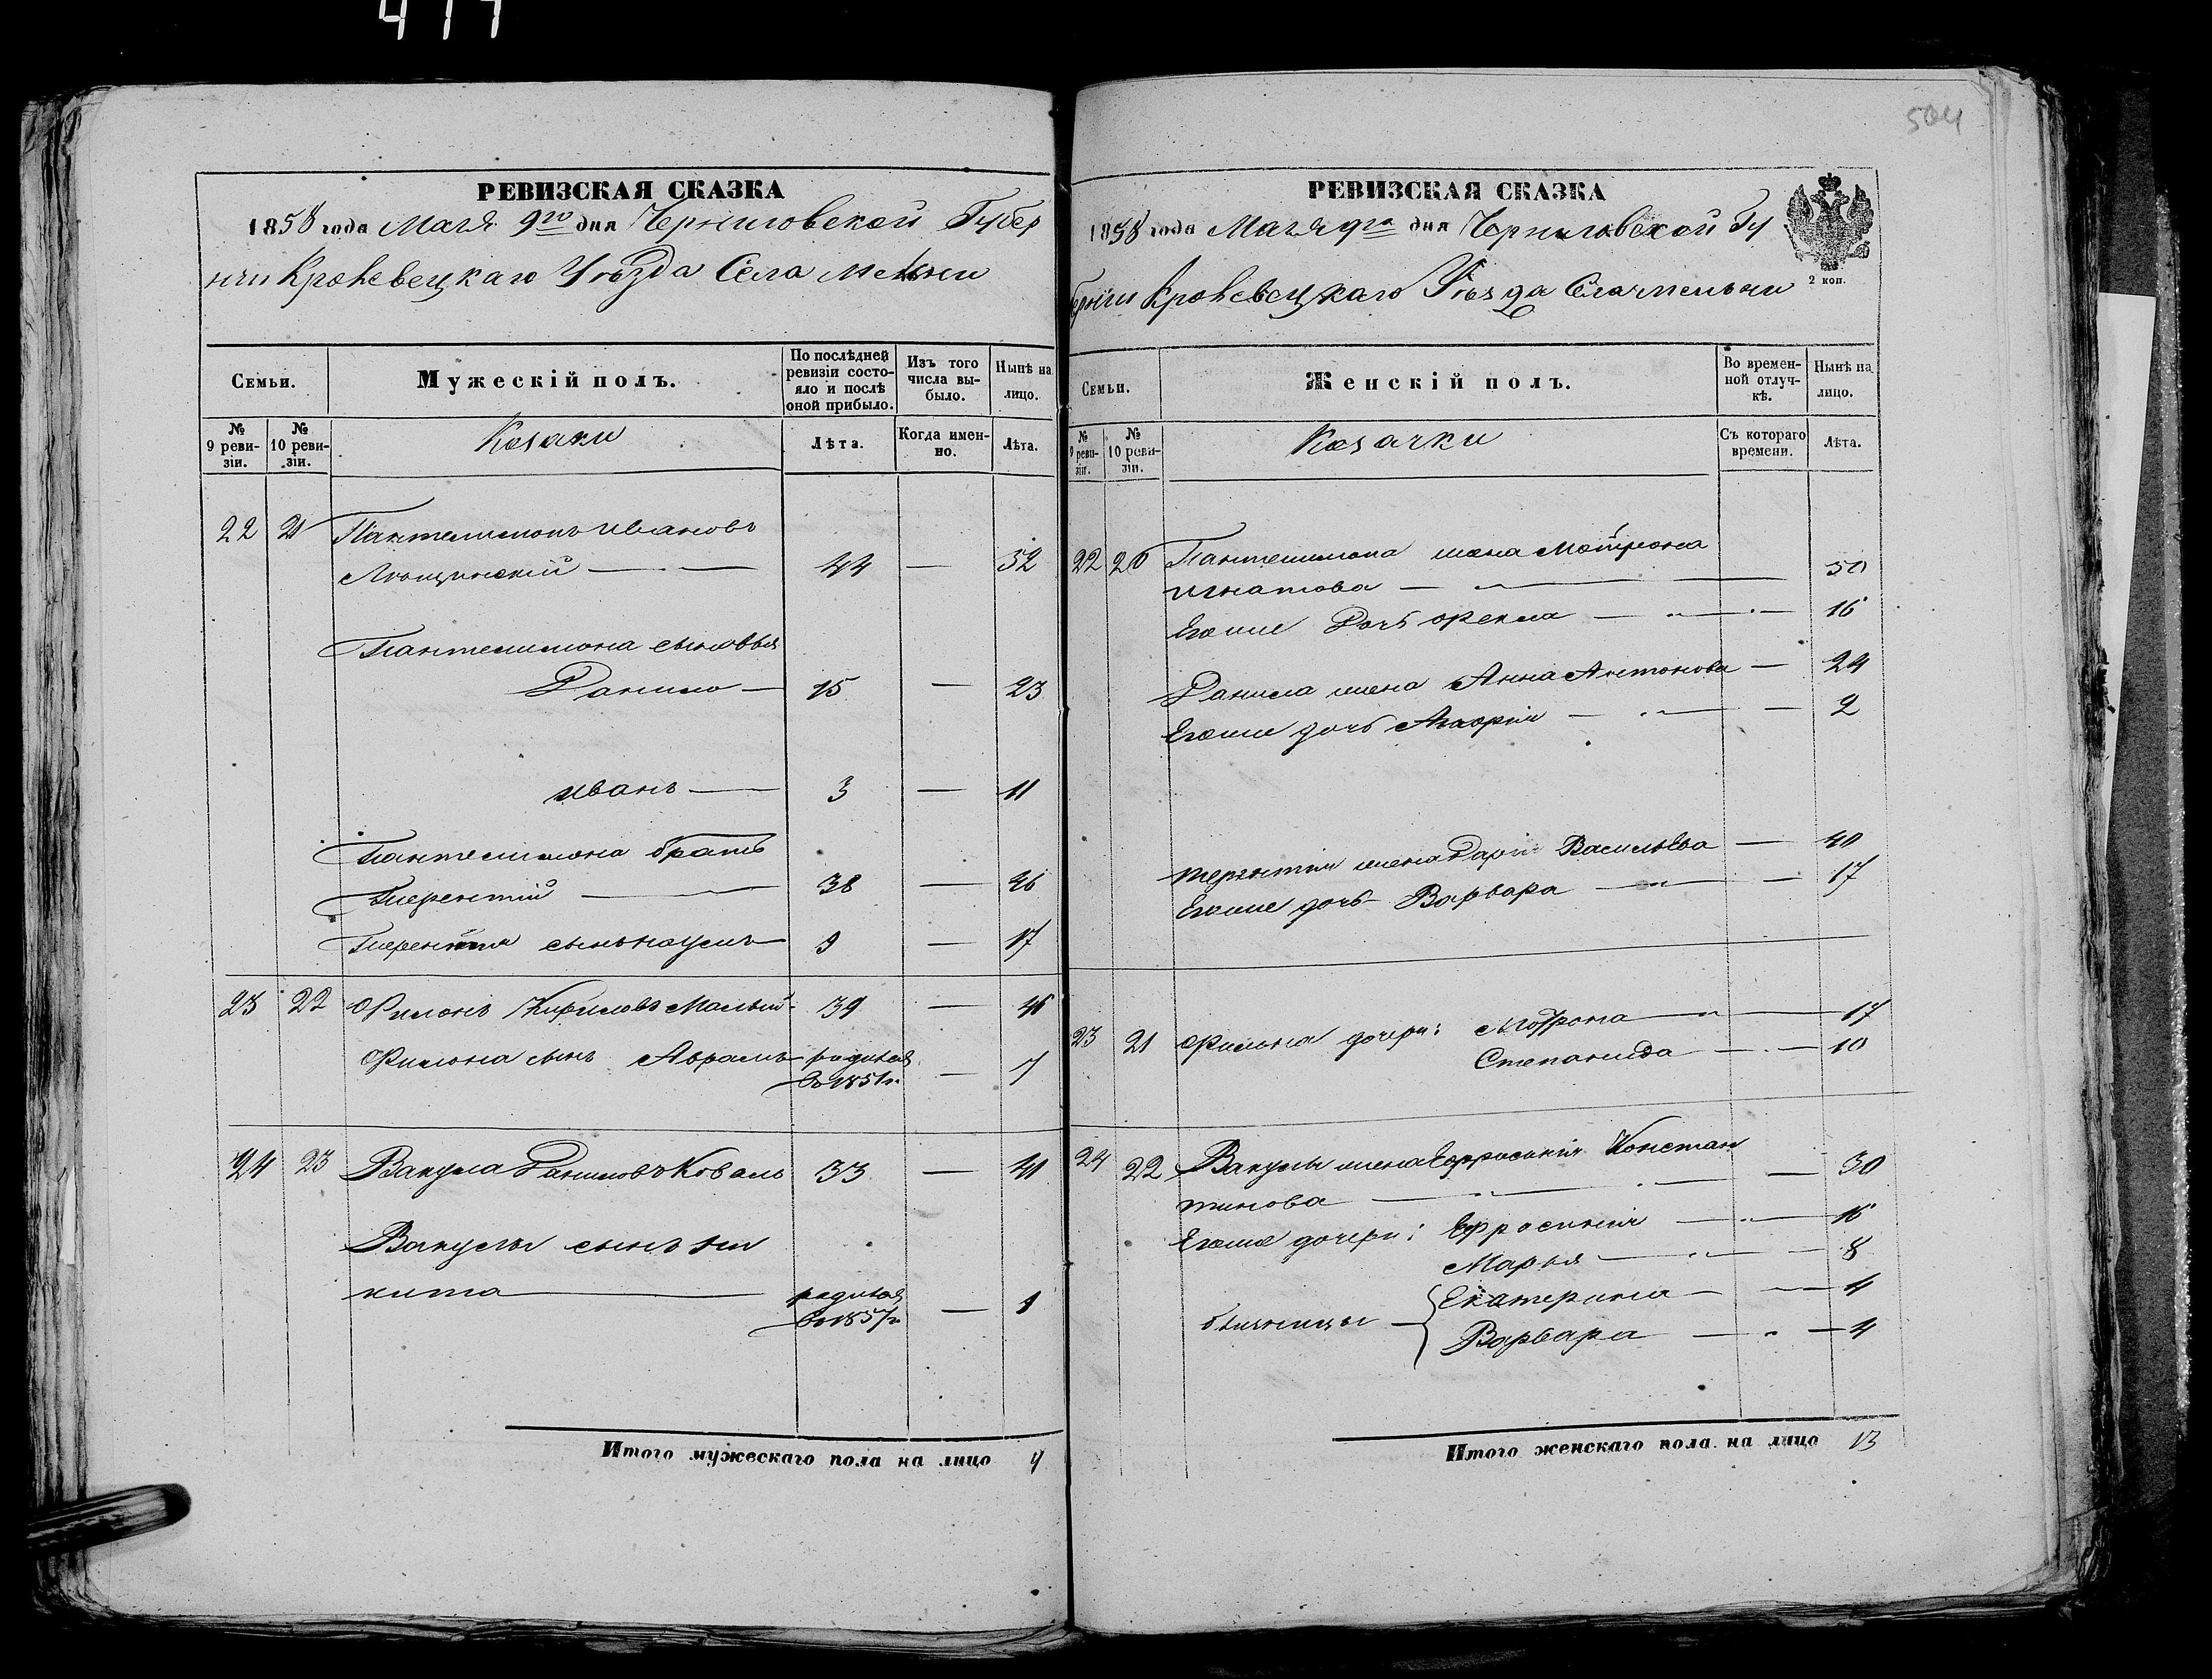 504
РЕВИЗСКАЯ СКАЗКА
1858 года Маія 9го дня Черниговской Губер
ніи Кролевецкаго Уѣзда Села
Семьи.
Мужескій полъ.
По послѣдней ревизіи состояло и послѣ оной прибыло.
Изъ того числа выбыло.
Нынѣ на лицо.
№ 9 ревизіи.
№ 10 ревизіи.
Козаки
Лѣта.
Когда именно.
Лѣта.
22 21 Пантелимонъ Ивановъ
44 — 52
Пантелимона сыновья
Данило — 15 — 23
Иванъ — 3 — 11
Пантелимона братъ
Терентій — 38 — 46
Терентія сынъ Наумъ — 9 — 17
23 22 Филонъ Кириловъ Малый 39 — 46
Филона сынъ Абрамъ — родился
въ 1851 г. — 7
24 23 Вакула Даниловъ Коваль 33 — 41
Вакулы сынъ Ни
кита — родился
въ 1857 г. — 1
Итого мужескаго пола на лицо 9
РЕВИЗСКАЯ СКАЗКА
1858 года Маія 9го дня Черниговской Гу
берніи Кролевецкаго Уѣзда Села
2 коп.
Семьи.
Женскій полъ.
Во временной отлучкѣ.
Нынѣ на лицо.
№ 9 ревизіи.
№ 10 ревизіи.
Козачки
Съ котораго времени.
Лѣта.
22 20 Пантелимона жена Мотрона
Игнатова — 50
Егоже дочь Фекла — 16
Данила жена Анна Антонова — 24
Егоже дочь Агафія — 2
Терентія жена Дарія Васильева — 40
Егоже дочь Варвара — 17
23 21 Филона дочери: Мотрона — 17
Степанида — 10
24 22 Вакулы жена Ефросинія Констан
тинова — 30
Егоже дочери: Ефросинія — 16
Марья — 8
близницы — { Екатерина — 4
Варвара — 4
Итого женскаго пола на лицо 13